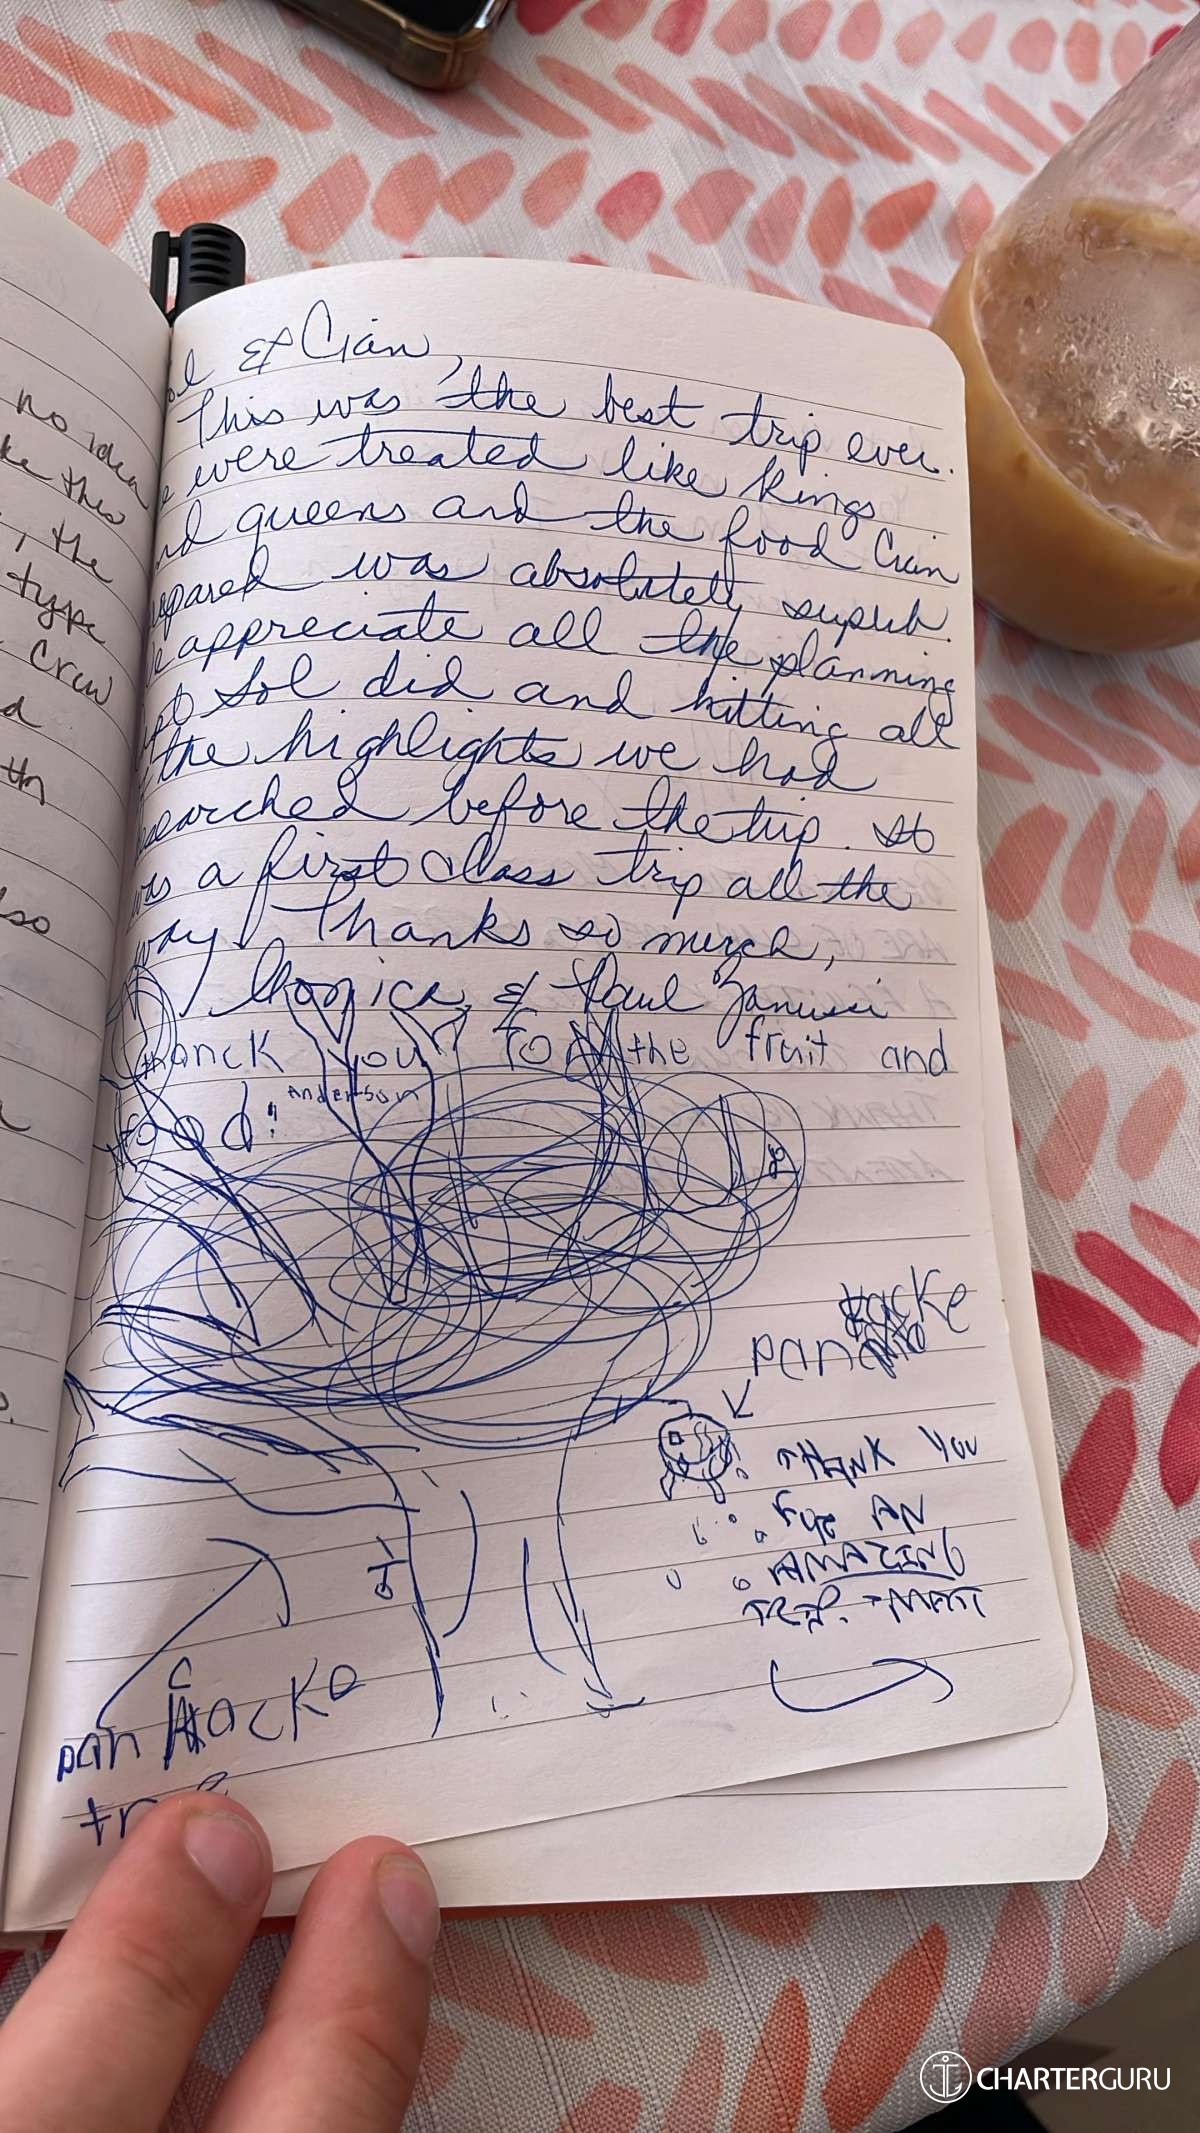 no idea
the
type
crew
ol & Cian,
This was the best trip ever.
e were treated like kings
nd queens and the food Cian
epared was absolutely superb.
e appreciate all the planning
pt Sol did and hitting all
the highlights we had
searched before the trip. It
was a first class trip all the
way! Thanks so much,
Monica & Paul Zanussi
thanck you for the fruit and
food!
Anderson
panckacke
THANK YOU
FOR AN
AMAZING
TRIP. -MATT
pan cacke
tree
CHARTERGURU